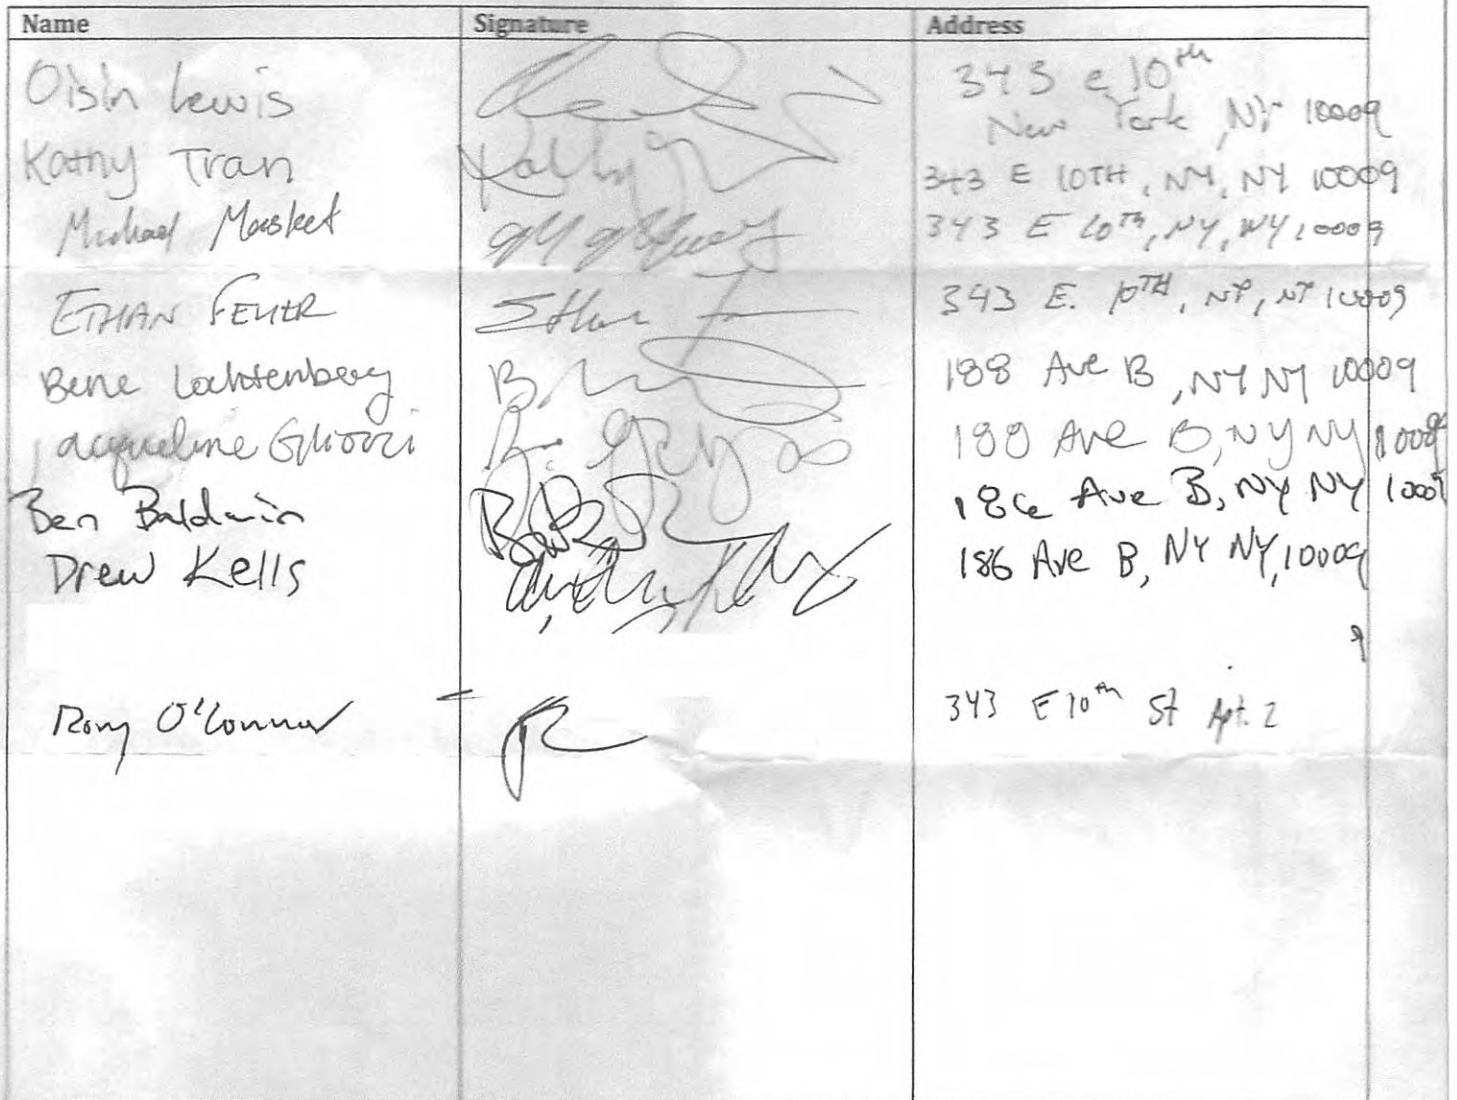 Name Signature Address
Oisin Lewis 343 e 10th
New York, NY 10009
Kathy Tran Kathy 343 E 10TH, NY, NY 10009
Michael Masket 343 E 10th, NY, NY 10009
ETHAN FEHER Ethan F 343 E. 10TH, NY, NY 10009
Bene Lochtenberg B. 188 Ave B, NY NY 10009
Jacqueline Gliozzi 188 Ave B, NY NY 10009
Ben Baldwin 186 Ave B, NY NY 10009
Drew Kells 186 Ave B, NY NY, 10009
9
Rory O'Connor 343 E 10th St Apt. 2